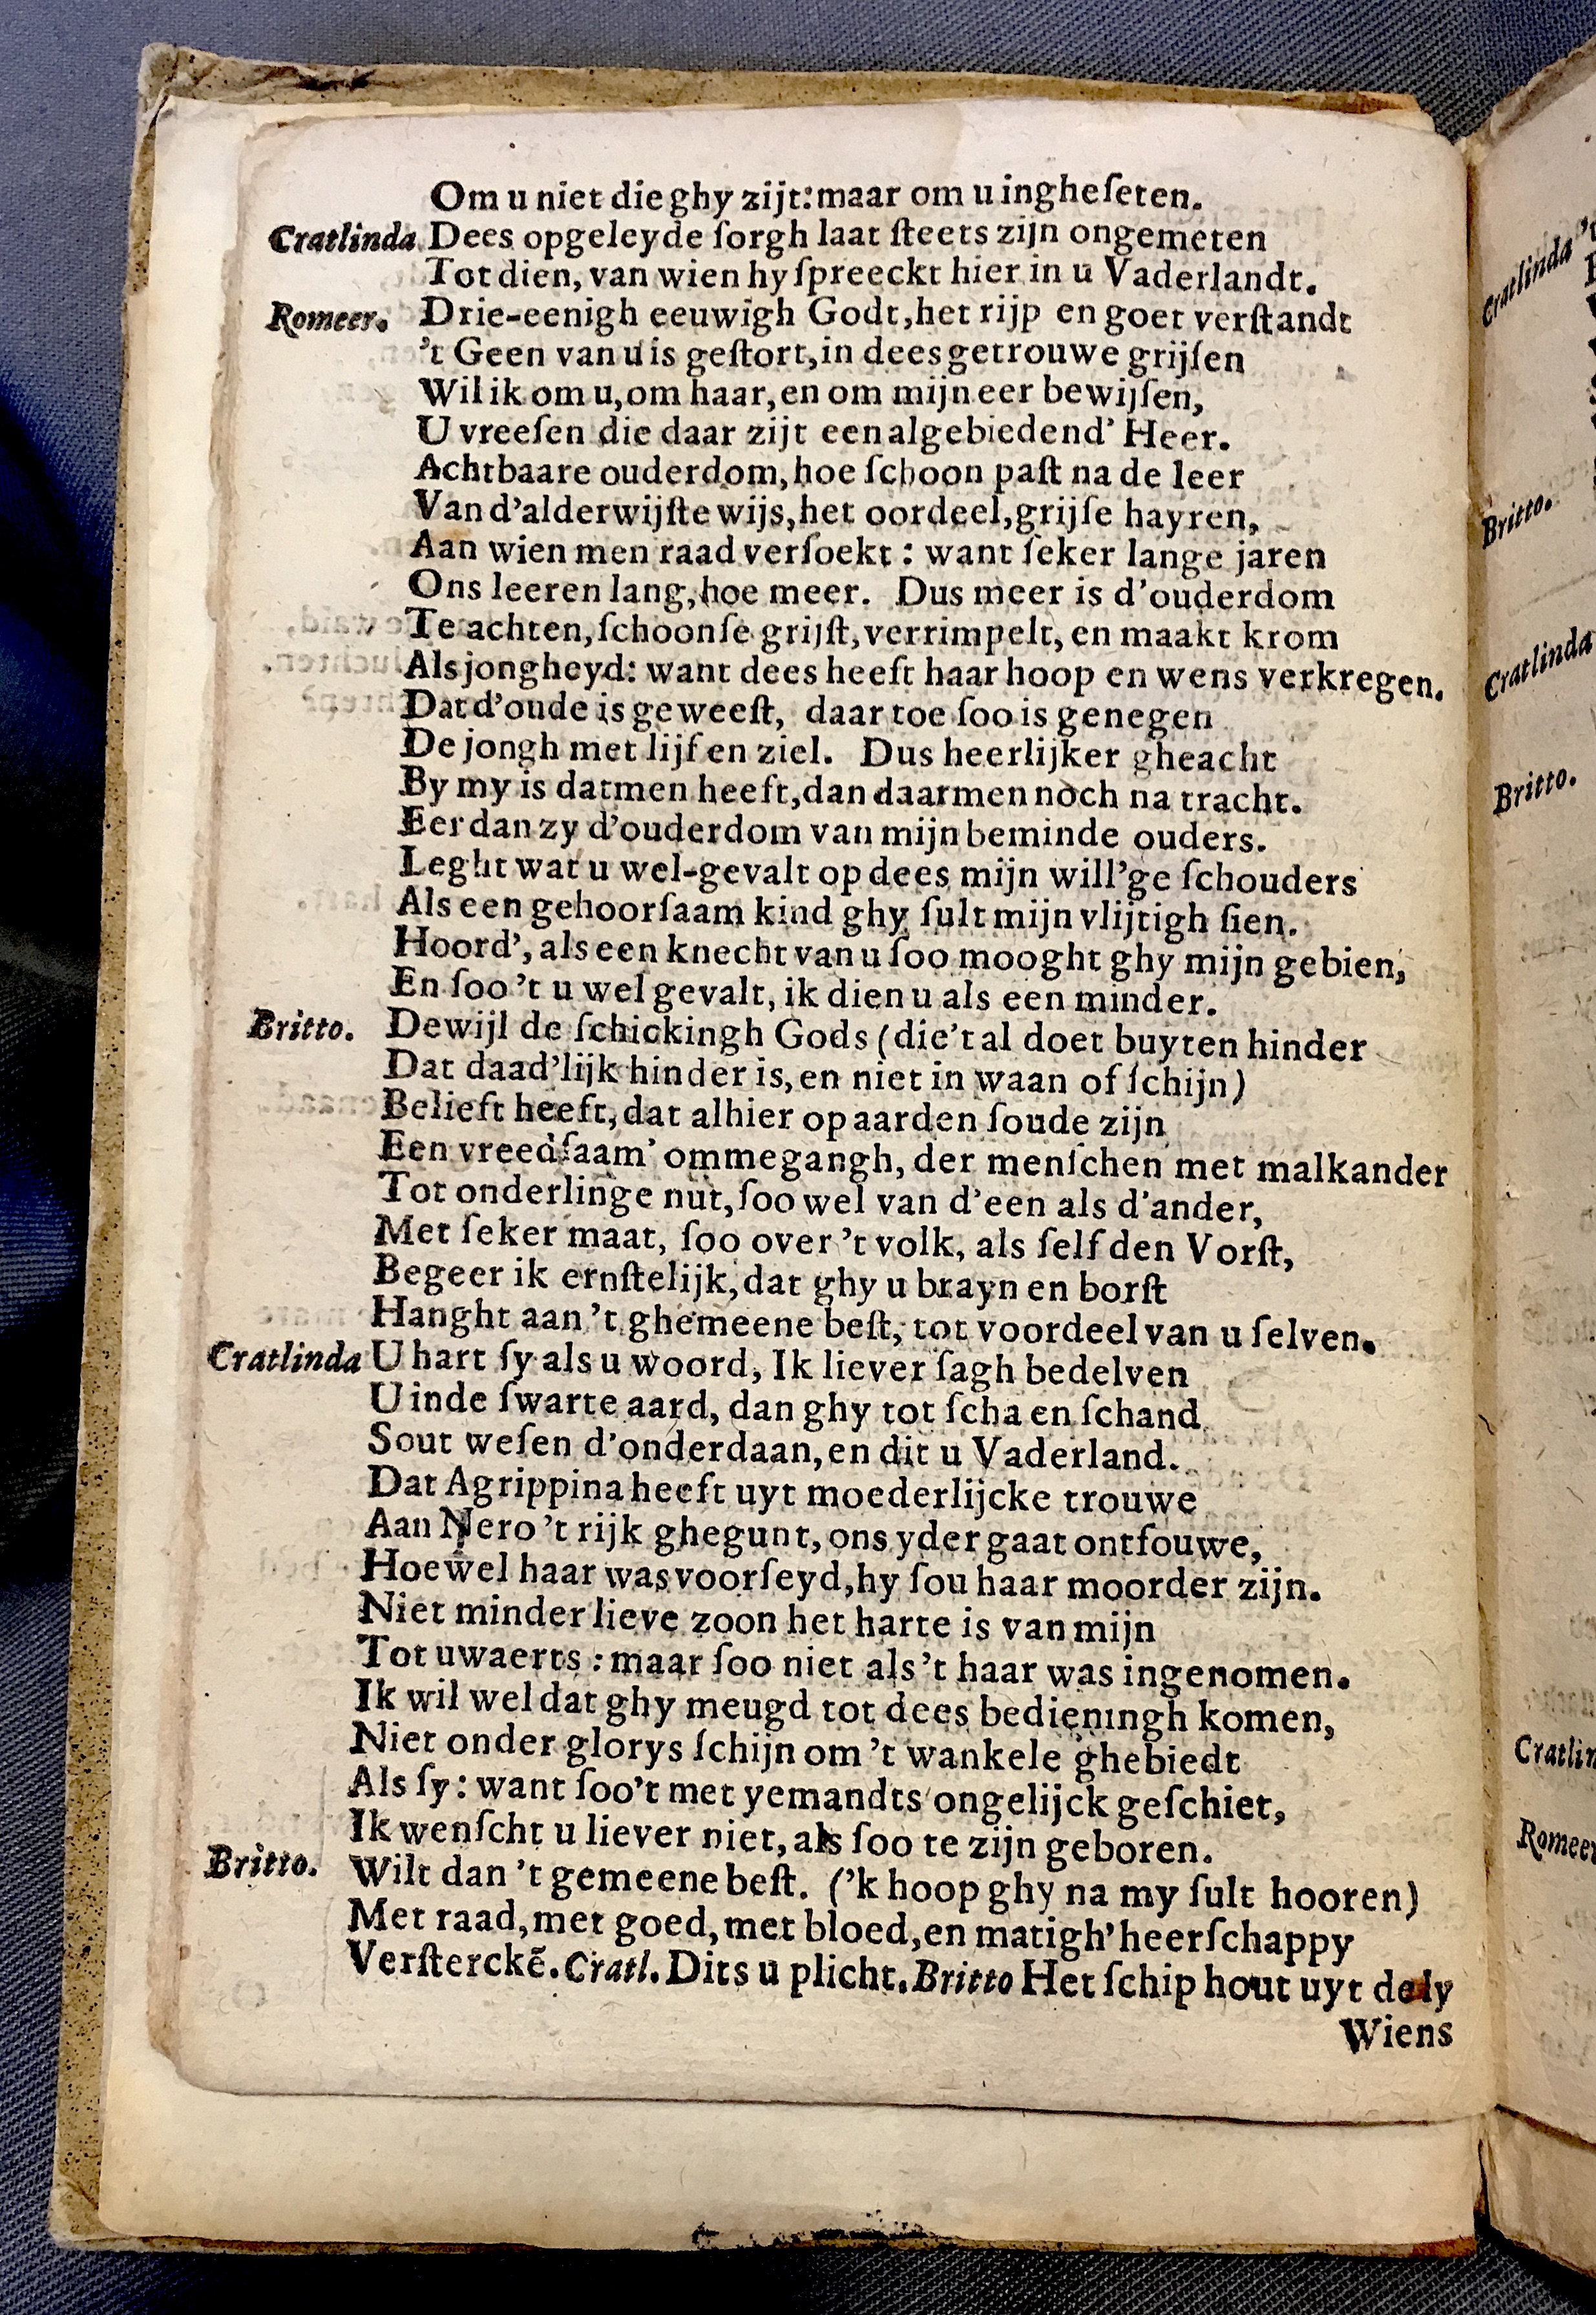 Om u niet die ghy zijt: maar om u ingheſeten.
Cratlinda Dees opgeleyde ſorgh laat ſteets zijn ongemeten
Tot dien, van wien hy ſpreeckt hier in u Vaderlandt.
Romeer. Drie-eenigh eeuwigh Godt, het rijp en goet verſtandt
't Geen van u is geſtort, in dees getrouwe grijſen
Wil ik om u, om haar, en om mijn eer bewijſen,
U vreeſen die daar zijt een algebiedend' Heer.
Achtbaare ouderdom, hoe ſchoon paſt na de leer
Van d'alderwijſte wijs, het oordeel, grijſe hayren,
Aan wien men raad verſoekt: want ſeker lange jaren
Ons leeren lang, hoe meer. Dus meer is d'ouderdom
Te achten, ſchoon ſe grijſt, verrimpelt, en maakt krom
Als jongheyd: want dees heeft haar hoop en wens verkregen.
Dat d'oude is geweeſt, daar toe ſoo is genegen
De jongh met lijf en ziel. Dus heerlijker gheacht
By my is datmen heeft, dan daarmen noch na tracht.
Eer dan zy d'ouderdom van mijn beminde ouders.
Leght wat u wel-gevalt op dees mijn will'ge ſchouders
Als een gehoorſaam kind ghy ſult mijn vlijtigh ſien.
Hoord', als een knecht van u ſoo mooght ghy mijn gebien,
En ſoo 't u wel gevalt, ik dien u als een minder.
Britto. Dewijl de ſchickingh Gods (die 't al doet buyten hinder
Dat daad'lijk hinder is, en niet in waan of ſchijn)
Belieft heeft, dat alhier op aarden ſoude zijn
Een vreedſaam' ommegangh, der menſchen met malkander
Tot onderlinge nut, ſoo wel van d'een als d'ander,
Met ſeker maat, ſoo over 't volk, als ſelf den Vorſt,
Begeer ik ernſtelijk, dat ghy u brayn en borſt
Hanght aan 't ghemeene beſt, tot voordeel van u ſelven.
Cratlinda U hart ſy als u woord, Ik liever ſagh bedelven
U inde ſwarte aard, dan ghy tot ſcha en ſchand
Sout weſen d'onderdaan, en dit u Vaderland.
Dat Agrippina heeft uyt moederlijcke trouwe
Aan Nero 't rijk ghegunt, ons yder gaat ontfouwe,
Hoewel haar was voorſeyd, hy ſou haar moorder zijn.
Niet minder lieve zoon het harte is van mijn
Tot uwaerts: maar ſoo niet als 't haar was ingenomen.
Ik wil wel dat ghy meugd tot dees bedieningh komen,
Niet onder glorys ſchijn om 't wankele ghebiedt
Als ſy: want ſoo't met yemandts ongelijck geſchiet,
Ik wenſcht u liever niet, als ſoo te zijn geboren.
Britto. Wilt dan 't gemeene beſt. ('k hoop ghy na my ſult hooren)
Met raad, met goed, met bloed, en matigh' heerſchappy
Verſterckē. Cratl. Dits u plicht. Britto Het ſchip hout uyt de ly
Wiens
Cratlinda
Britto.
Cratlinda
Britto.
Cratlin
Romeer